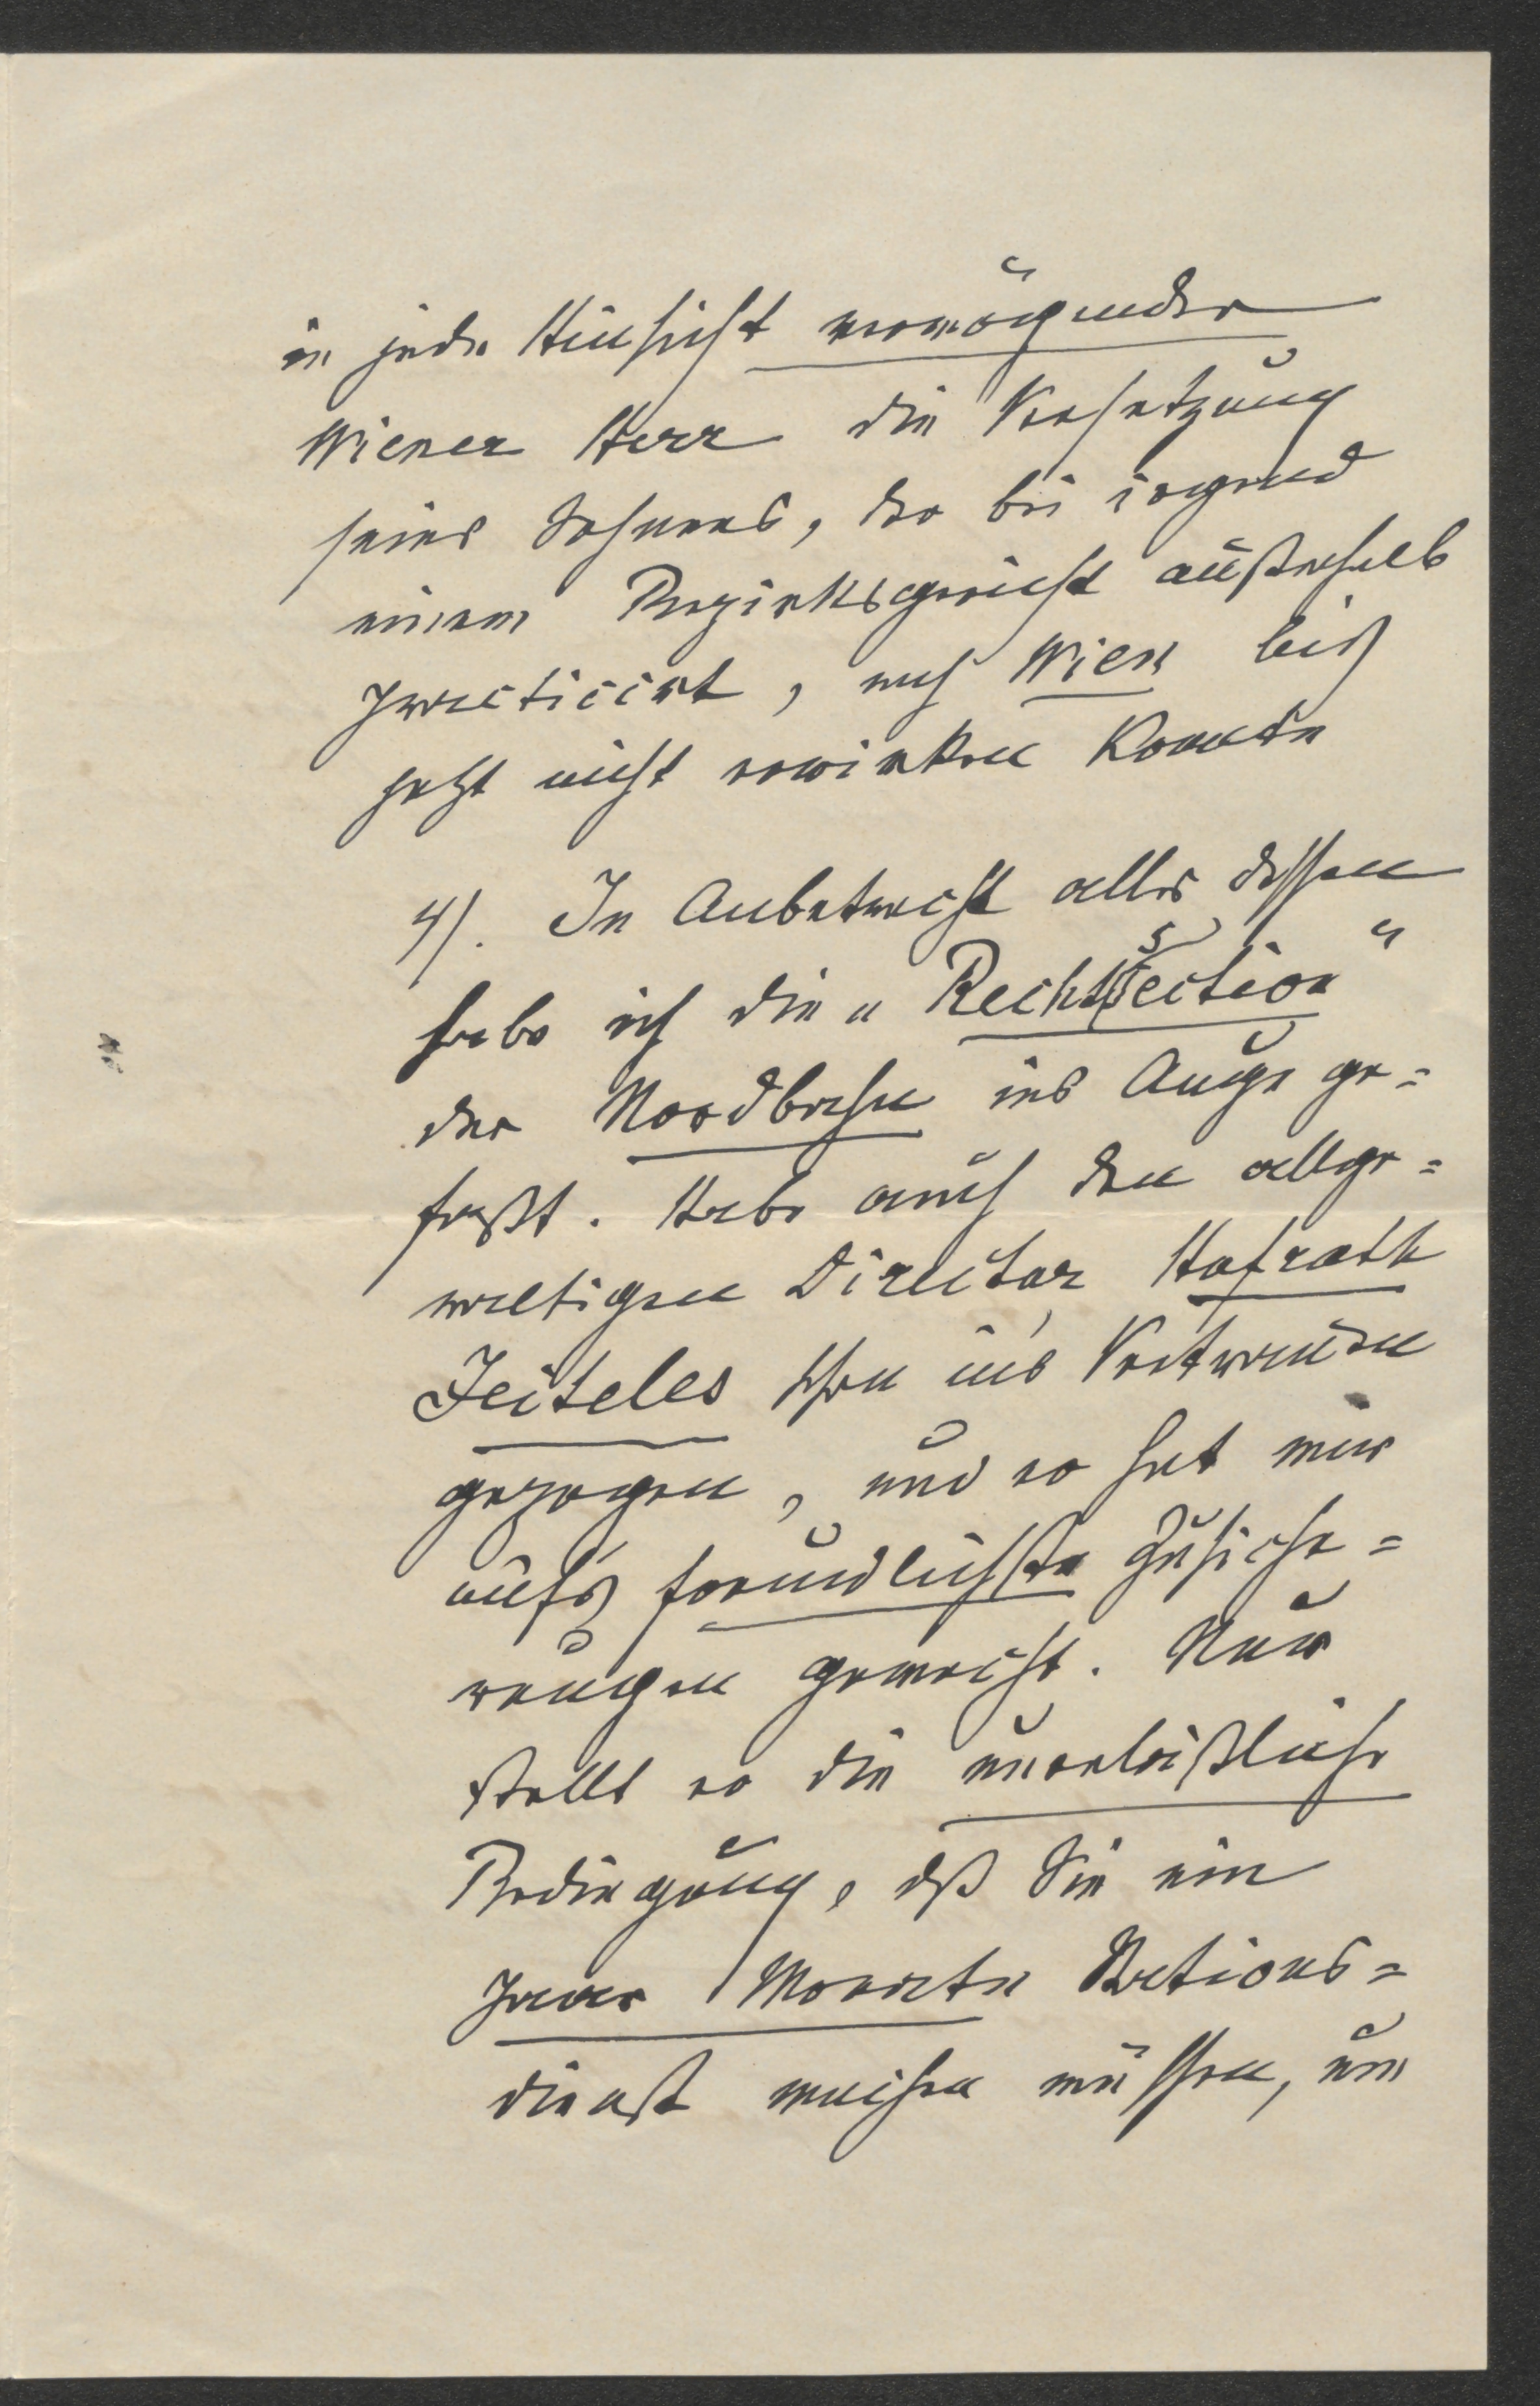 in jeder Hinsicht vermögender
Wiener Herr die Versetzung
seines Sohnes, der bei irgend
einem Bezirksgericht außerhalb
practicirt, nach Wien bis
jetzt nicht erwirken konnte
4). In Anbetracht alles dessen
habe ich die „Rechtssection“
der Nordbahn ins Auge ge=
faßt. Habe auch den allge=
waltigen Director Hofrath
Jeiteles schon in's Vertrauen
gezogen, und er hat mir
auf's freundlichste Zusiche=
rungen gemacht. Nur
stellt er die unerläßliche
Bedingung, dß Sie ein
paar Monate Stations=
dienst machen müssen, um